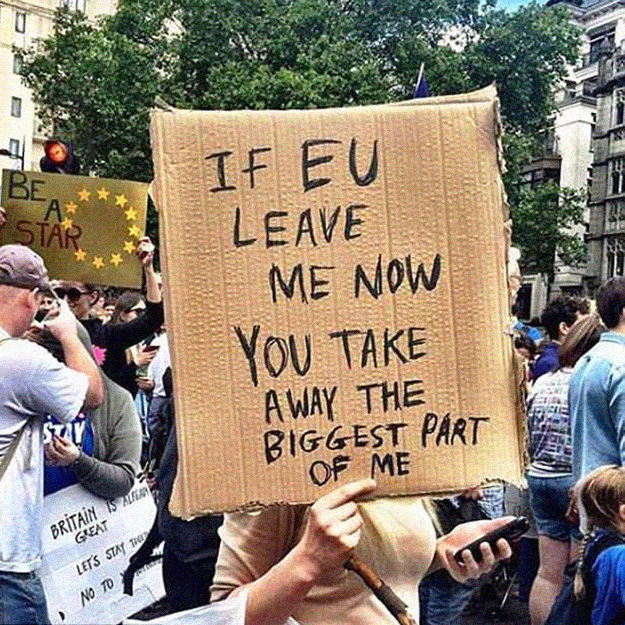 IF EU
LEAVE
ME NOW
YOU TAKE
AWAY THE
BIGGEST PART
OF ME
BE
A
STAR
BRITAIN IS
GREAT
LET'S STAY
NO TO